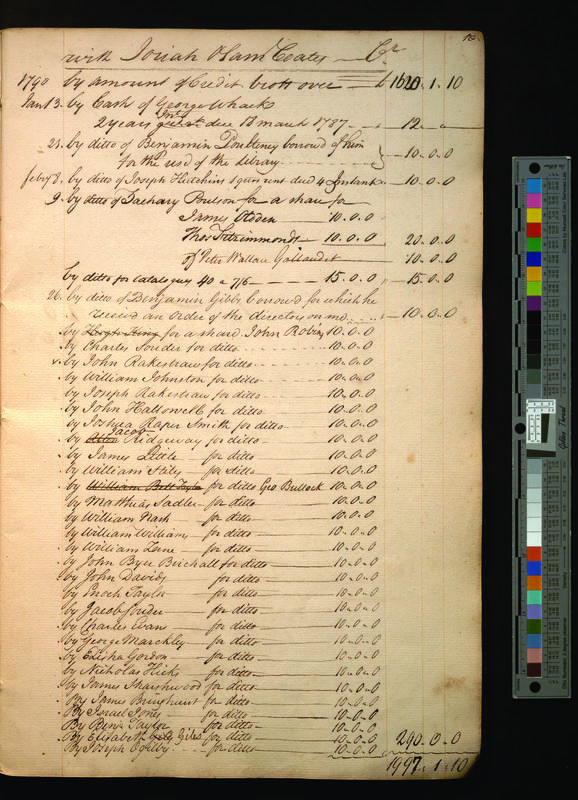 10.
with Josiah & Saml Coates — Cr
1790 by amount of Credit brott over — £ 1620.1.10
Jan 13. by Cash of George
2 years Intt due 13 march 1787 — 12. —
21. by ditto of Benjamin Poultney borrowed of him
for the use of the library — 10.0.0
feby 8. by ditto of Joseph Hutchins 1 due 4 Instant — 10.0.0
9. by ditto of Zachary Poulson for a share for
James Ogden — 10.0.0
Thos Fitzimmonds — 10.0.0 20.0.0
of Peter Wallace Gallaudet — 10.0.0
by ditto for Catalogues 40 a 7/6 — 15.0.0 15.0.0
26. by ditto of Benjamin Gibbs borrowd for which he
received an Order of the directors on me — 10.0.0
by for a share John 10.0.0
by Charles Souder for ditto 10.0.0
by John Rakestraw for ditto 10.0.0
by William Johnston for ditto 10.0.0
by Joseph Rakestraw for ditto 10.0.0
by John Hallowell for ditto 10.0.0
by Joshua Raper Smith for ditto 10.0.0
by Jacob Ridgway for ditto 10.0.0
by James Little for ditto 10.0.0
by William Stiles for ditto 10.0.0
by William Taylor for ditto Geo Bullock 10.0.0
by Matthias Sadler for ditto 10.0.0
by William Nash for ditto 10.0.0
by William Williams for ditto 10.0.0
by William Zane for ditto 10.0.0
by John Byer Birchall for ditto 10.0.0
by John Davis for ditto 10.0.0
by Enoch Taylor for ditto 10.0.0
by Jacob Souder for ditto 10.0.0
by Charles Evans for ditto 10.0.0
by George Marckley for ditto 10.0.0
by Elisha Gordon for ditto 10.0.0
by Nicholas Hicks for ditto 10.0.0
by James Sharswood for ditto 10.0.0
By James Bringhurst for ditto 10.0.0
By Israel Jones for ditto 10.0.0
By Benjn Taylor for ditto 10.0.0
By Elizabeth Giles for ditto 10.0.0 290.0.0
By Joseph Ogilby for ditto 10.0.0
1997.1.10